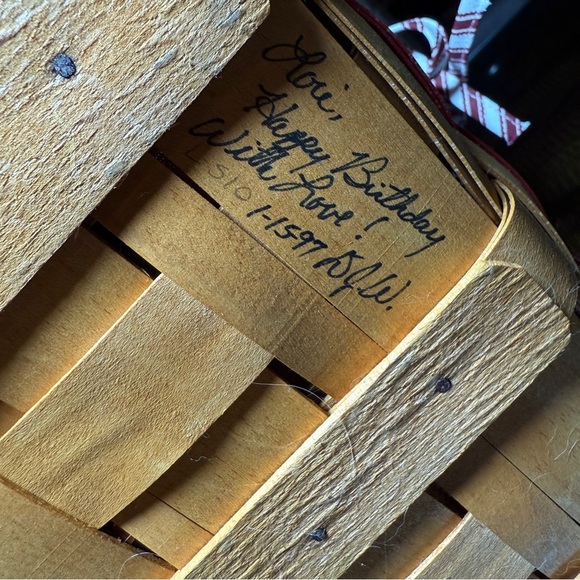 Lorie,
Happy Birthday
With Love!
LS10
1-1597 D.J.W.